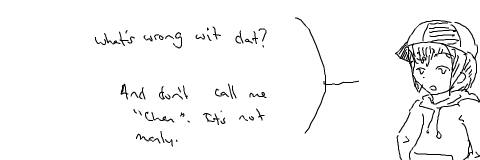 what's wrong wit dat?
And don't call me
"Chen". It's not
manly.